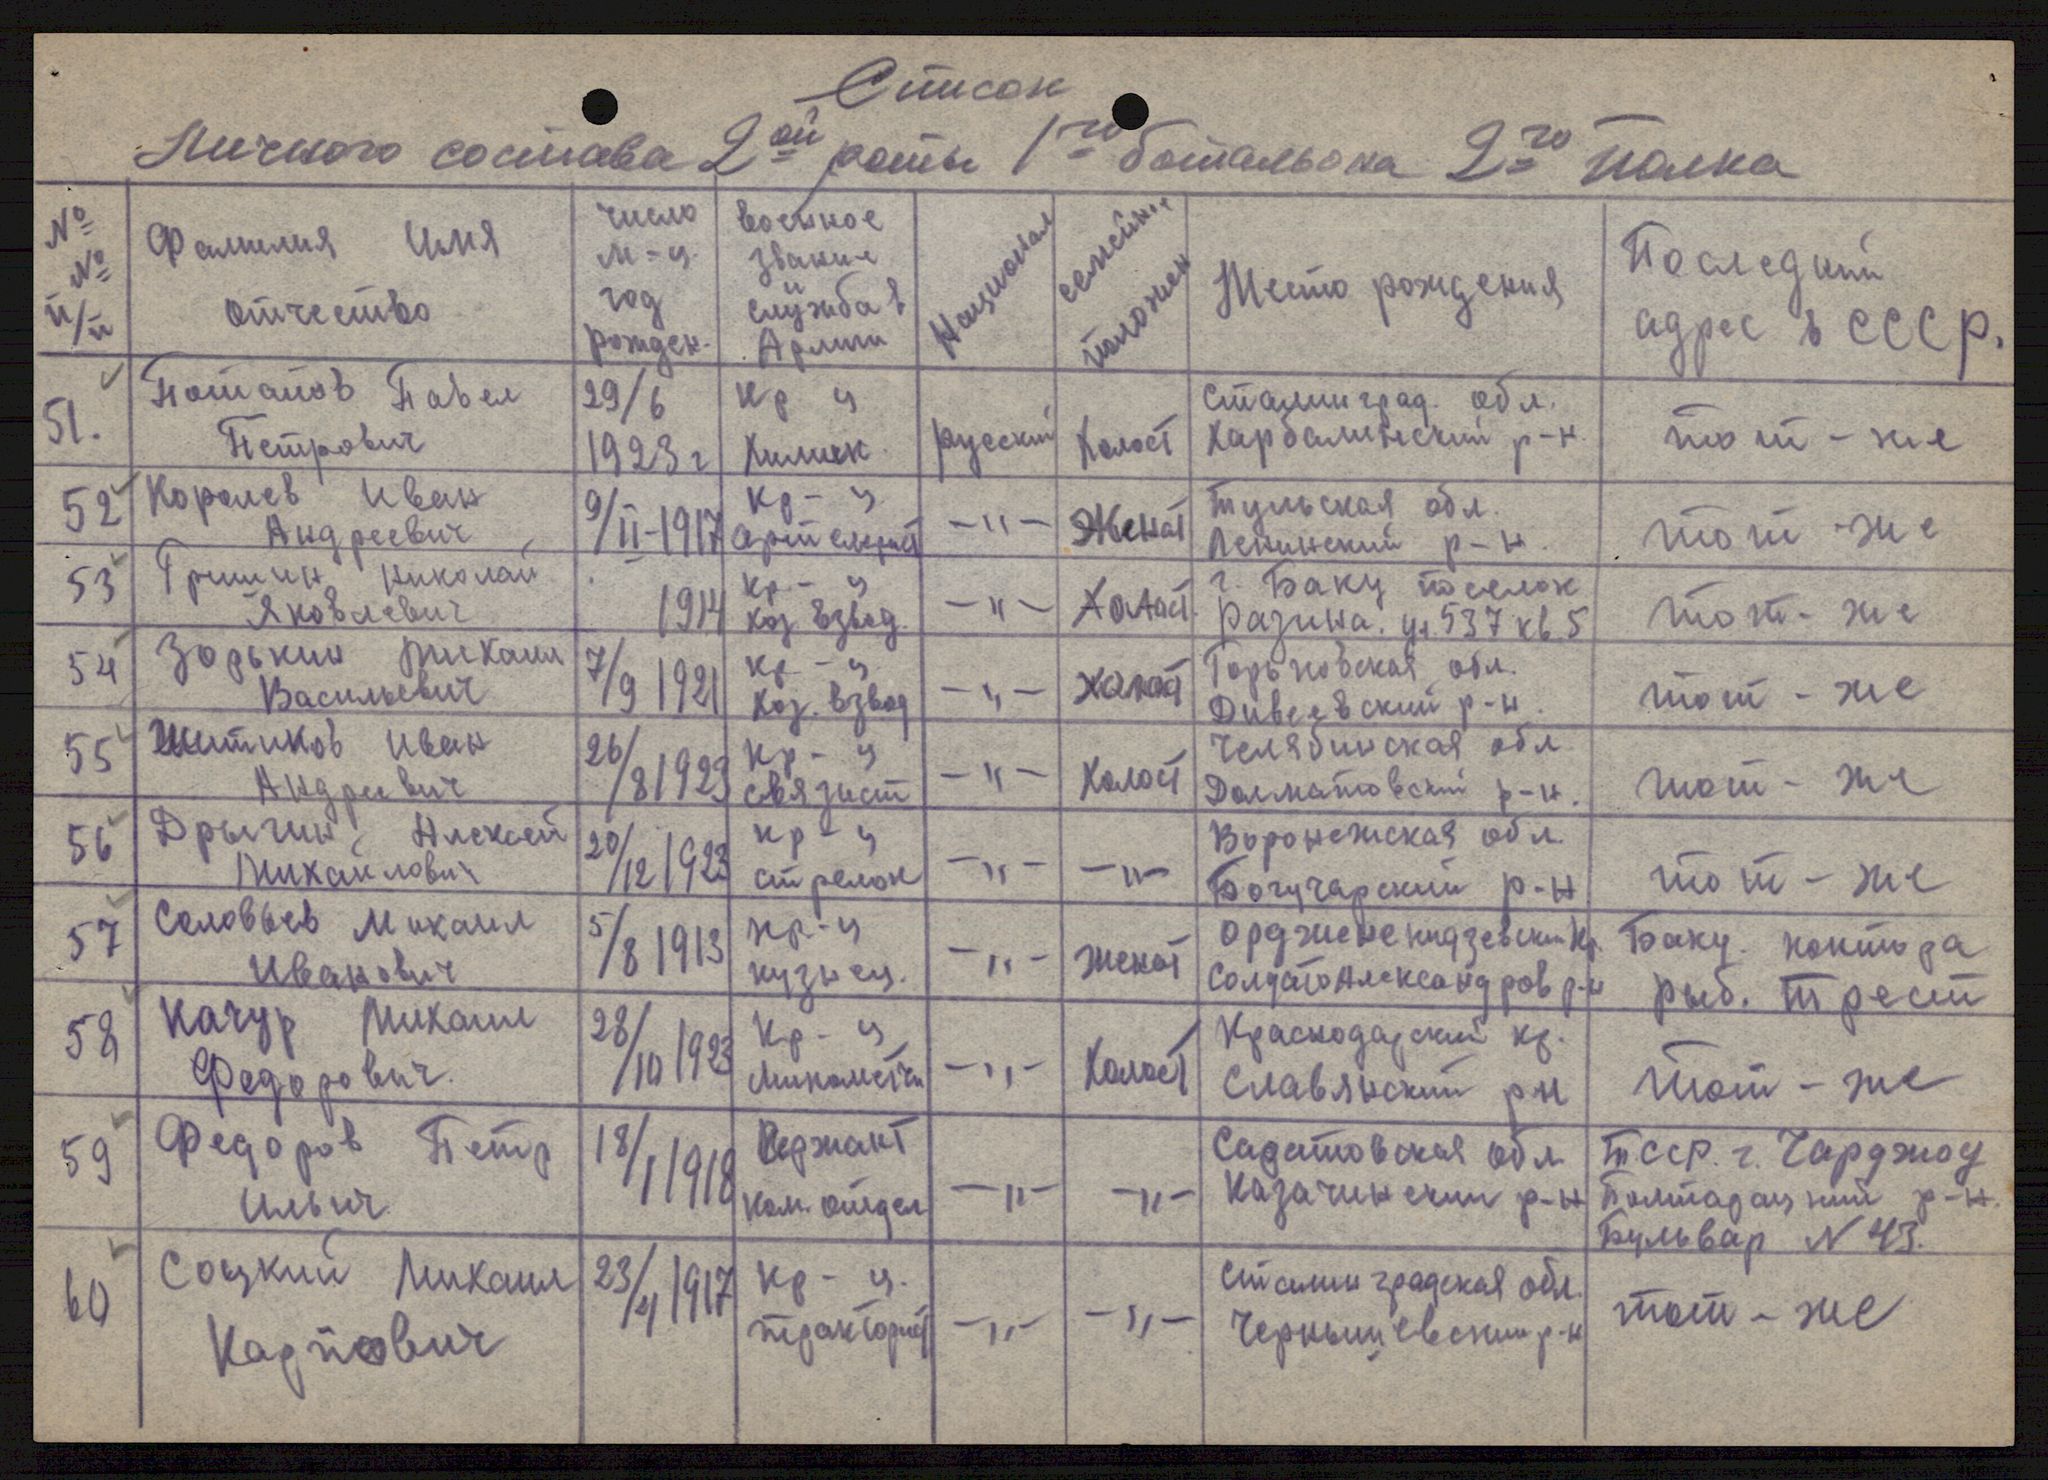 Список
Личного состава 2ой роты 1го баталъона 2го полка
№ № п/п | Фамилия Имя Отчество | число м-ц. год рожден. | военное звание служба в Армии | Национал | семейн. положен | Место рождения | Последний адрес в СССР.
51. | Потапов Павел Петрович | 29/6 1923 г | Кр ц Химик. | русский | Холост | Сталинград. обл. Харбалинский р-н. | тот - же
52 | Королев Иван Андреевич | 9/II-1917 | Кр- ц. | -"- | Женат | Тульская обл. Ленинский р-н. | тот - же
53 | Гришин Николай Яковлевич | 1914 | Кр- ц Хоз. взвод. | -"- | Холост. | г. Баку поселок Разина. ул. 537 кв 5 | тот - же
54 | Зорькин Михаил Васильевич | 7/9 1921 | Кр- ц. Хоз. взвод | -"- | Холост | Горьковская обл. Дивеевский р-н. | тот - же
55 | Шитиков Иван Андреевич | 26/8 1923 | Кр- ц связист | -"- | Холост | Челябинская обл Долматовский р-н. | тот - же
56 | Дрыгин Алексей Михайлович | 20/12 1923 | Кр- ц стрелок | -"- | -"- | Воронежская обл. Богучарский р-н | тот - же
57 | Соловьев Михаил Иванович | 5/8 1913 | Кр-ц кузнец. | -"- | женат | Орджененкидзевский Кр. СолдатоАлександров р-н | Баку. контора рыб. трест
58 | Качур Михаил Федорович. | 28/10 1923 | Кр- ц Минометчи | -"- | Холост | Краснодарский кр. Славянский рн | тот - же
59 | Федоров Петр Ильич. | 18/1 1918 | Сержант Ком. отдел | -"- | -"- | Саратовская обл. Казачинский р-н | ТССР. г. Чарджоу Полтарацкий р-н. Бульвар N 43.
60 | Соцкий Михаил Карпович | 23/4 1917 | Кр- ц. тракторист | -"- | -"- | Сталинградская обл. Чернышевский р-н | тот - же